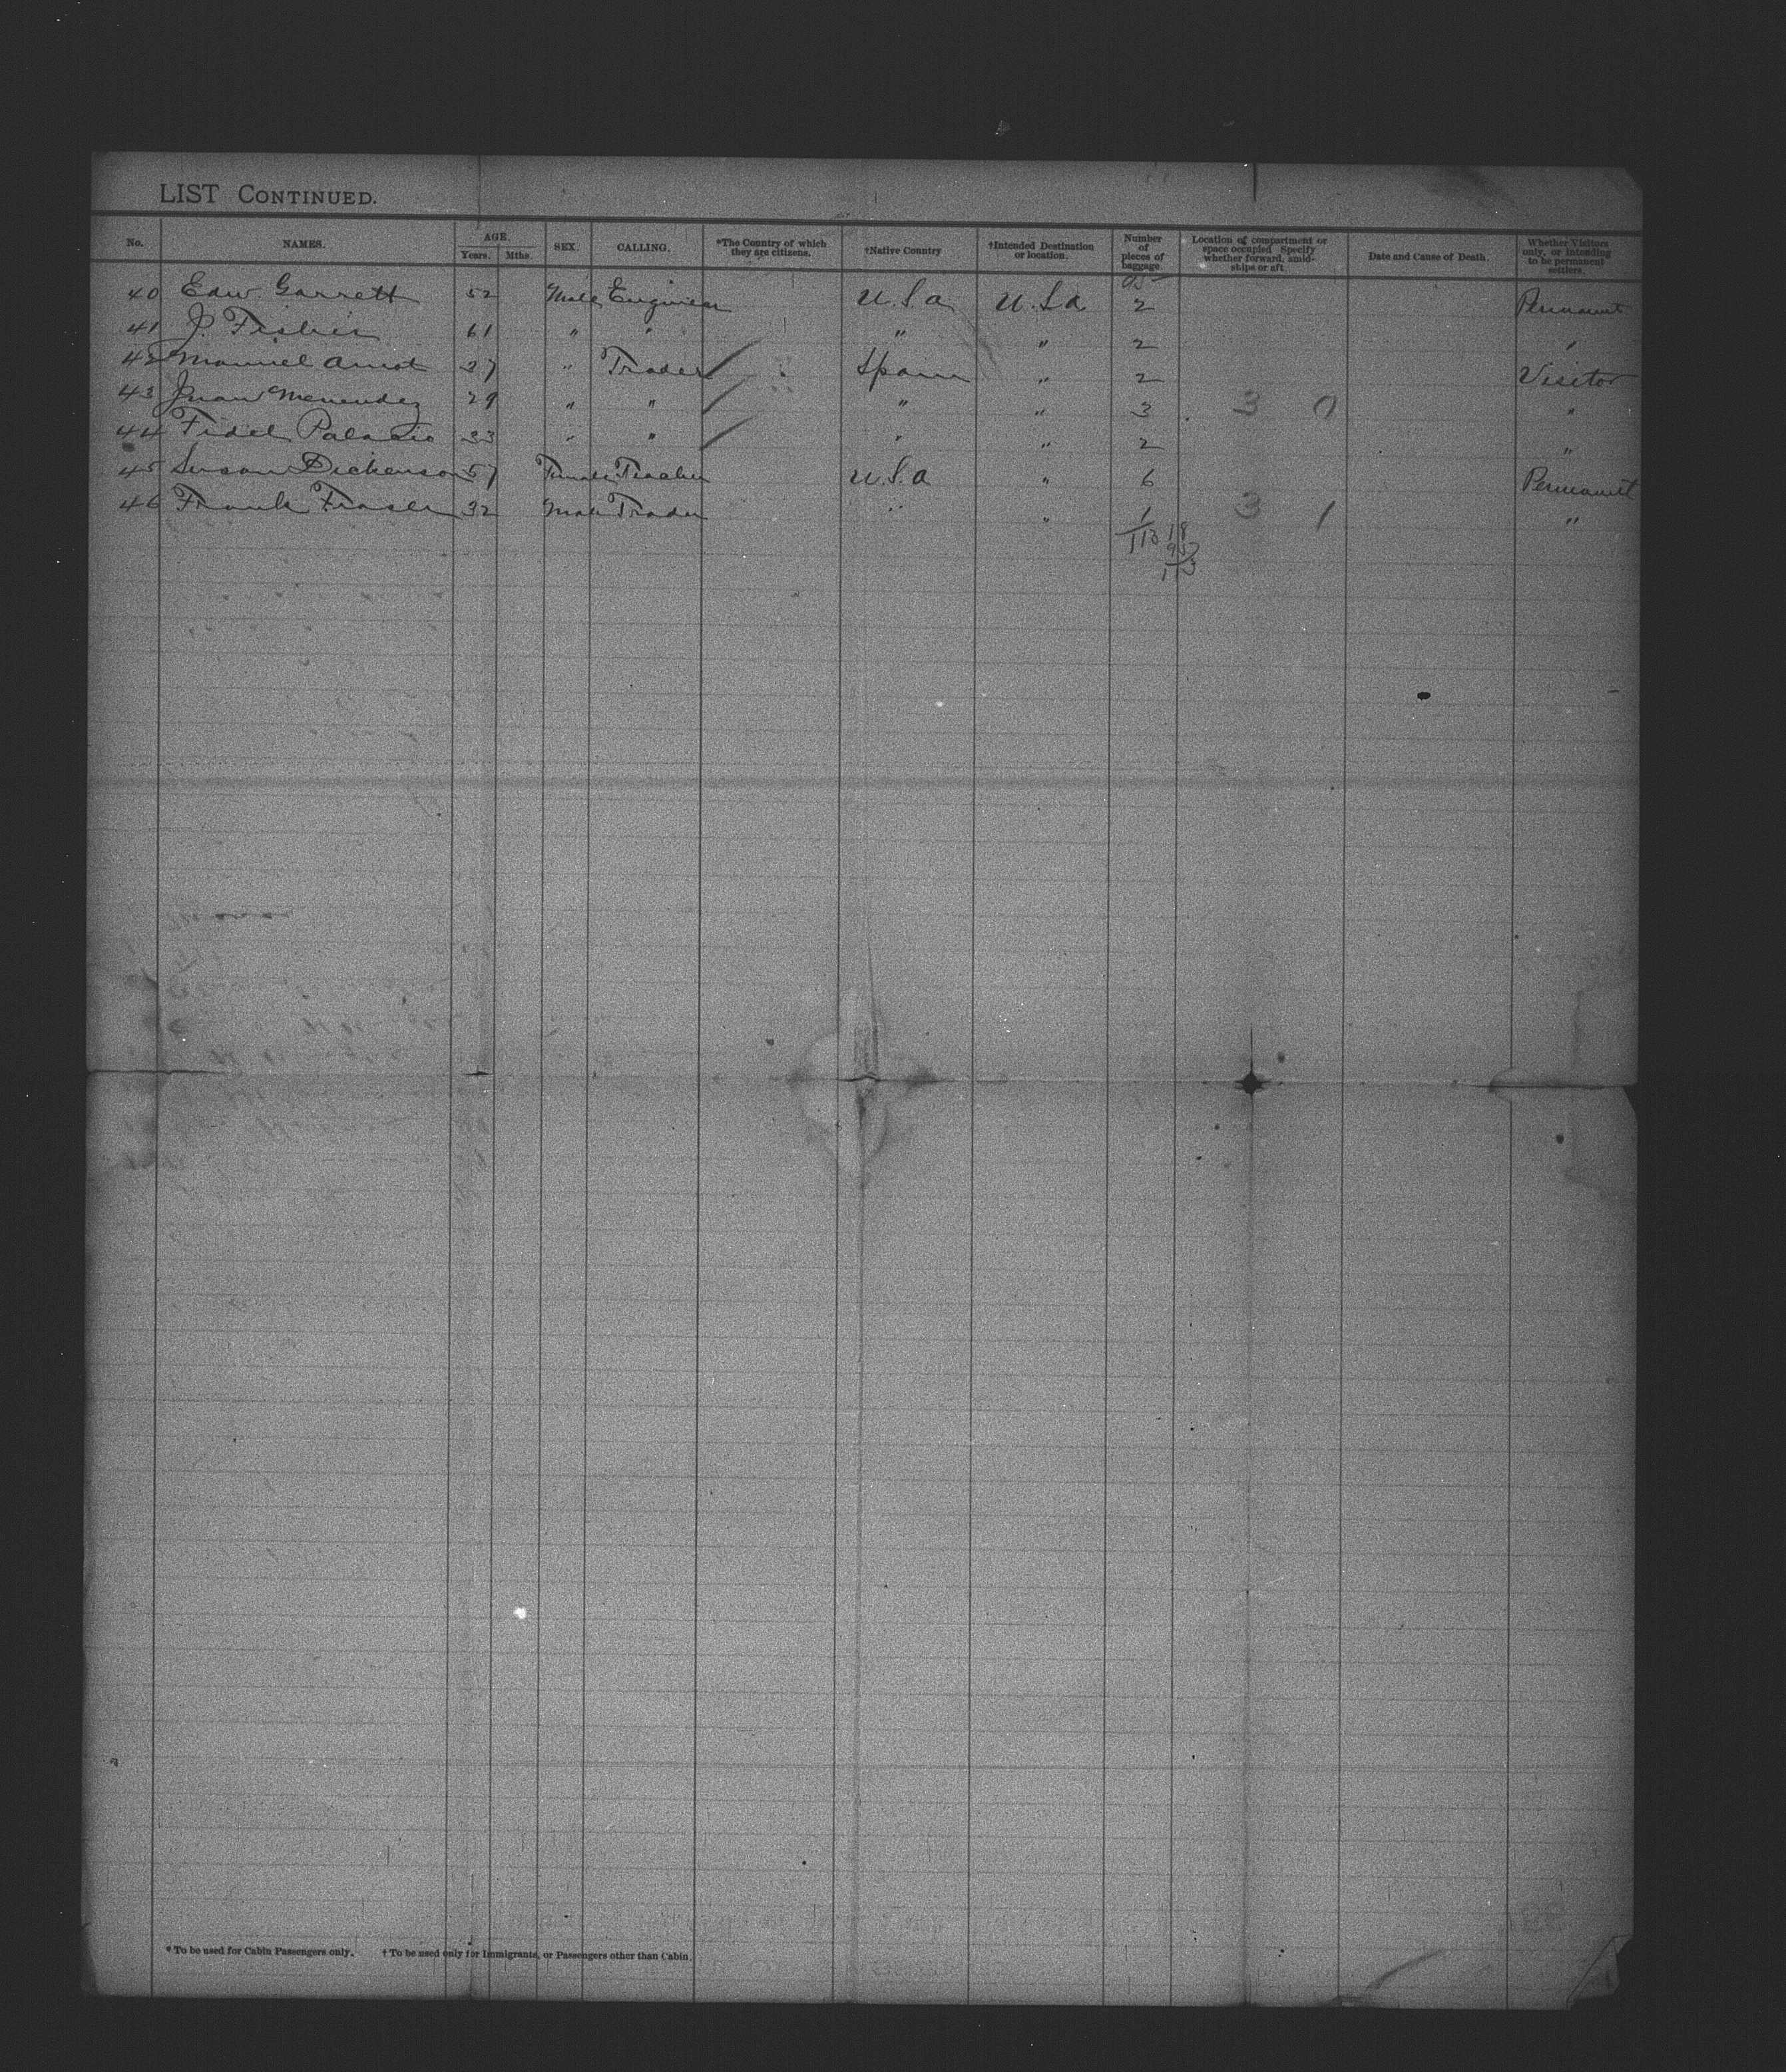 LIST CONTINUED.
No. NAMES. AGE. Years. Mths. SEX. CALLING. *The Country of which they are citizens. †Native Country †Intended Destination or location. Number of pieces of baggage. Location of compartment or space occupied Specify whether forward, amidships or aft Date and Cause of Death. Whether Visitors only, or intending to be permanent settlers.
95
40 Edw. Garrett 52 Male Engineer U.S.a U.S.a 2 Permanent
41 J. Fisher 61 " " " " 2 "
42 Manuel 37 " Trader Spain " 2 Visitor
43 Juan Menendez 29 " " " " 3 3 0 "
44 Fidel Palacio 33 " " " " 2 "
45 Susan Dickenson 57 Female Teacher U.S.a " 6 Permanent
46 Frank Fraser 32 Male Trader " " 1 3 1 "
113 18
95
113
* To be used for Cabin Passengers only. † To be used only for Immigrants, or Passengers other than Cabin.